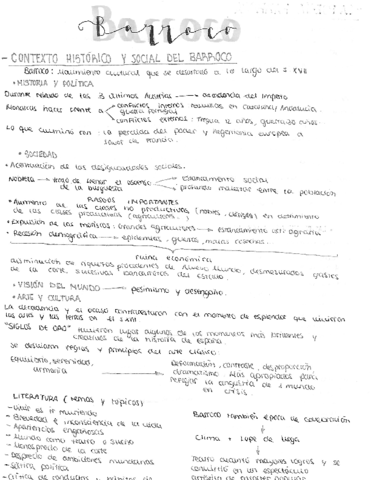 Barroco
- CONTEXTO HISTÓRICO Y SOCIAL DEL BARROCO
Barroco: Movimiento cultural que se desarrolló a lo largo del S. XVII
• HISTORIA Y POLÍTICA
Durante reinado de los 3 últimos Austrias → decadencia del Imperio
Monarcas hacen frente a conflictos internos revueltas en Cataluña y Andalucía.
guerra
conflictos externos: tregua 12 años, guerra 30 años
Lo que culminó con: la pérdida del poder y hegemonía europea a
favor de Francia.
• SOCIEDAD
• Acentuación de las desigualdades sociales.
Nobleza → trató de frenar el ascenso de la burguesía
→ estancamiento social
→ profundo malestar entre la población
RASGOS IMPORTANTES
• Aumento de las clases no productivas (nobles, clérigos) en detrimento
de las clases productivas (agricultores,)
• Expulsión de los moriscos, grandes agricultores → estancamiento
• Recesión demográfica → epidemias, guerras, malas cosechas.
ruina económica
disminución de riquezas procedentes de Nuevo Mundo, desmesurados gastos
de la corte, sucesivas bancarrotas del estado.
• VISIÓN DEL MUNDO → pesimismo y desengaño.
• ARTE Y CULTURA
La decadencia y el ocaso contrastaron con el momento de esplendor que vivieron
las artes y las letras en el S. XVII
"SIGLOS DE ORO" tuvieron lugar algunos de los momentos más brillantes y
creativos de la historia de España.
Se desvían reglas y principios del arte clásico
Equilibrio, serenidad, armonía
Deformación, contraste, desproporción
dramatismo más apropiados para
reflejar la angustia de un mundo
en crisis
LITERATURA (temas y tópicos)
- Brevedad e inconsistencia de la vida
- Apariencias engañosas
- Mundo como teatro o sueño
- Menosprecio de la corte
- Desprecio de ambiciones mundanas
- Sátira política
- Crítica de conductas y
Barroco también época de
Clima + Lope de Vega
Teatro alcanzó mayores logros y se
convirtió en un espectáculo